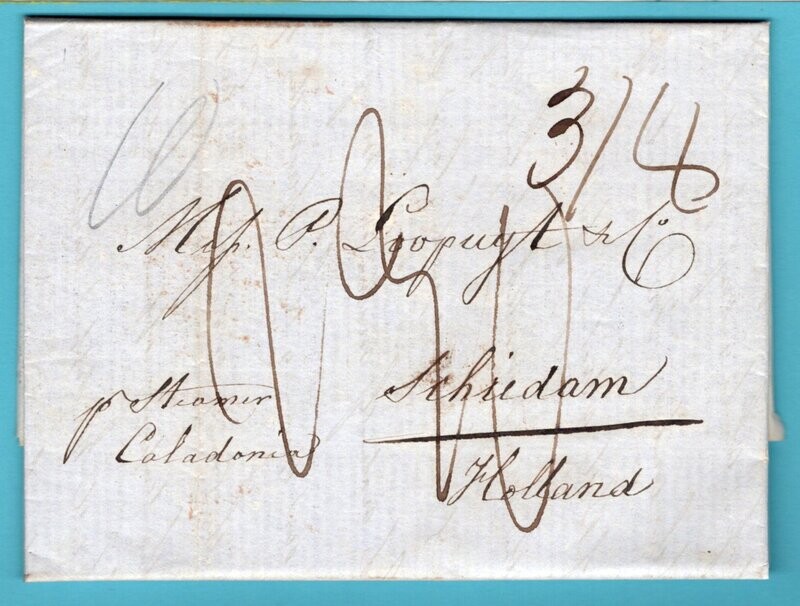 3/4
Mess. P. Loopuyt & Co
p Steamer
Caladonia
Schiedam
Holland